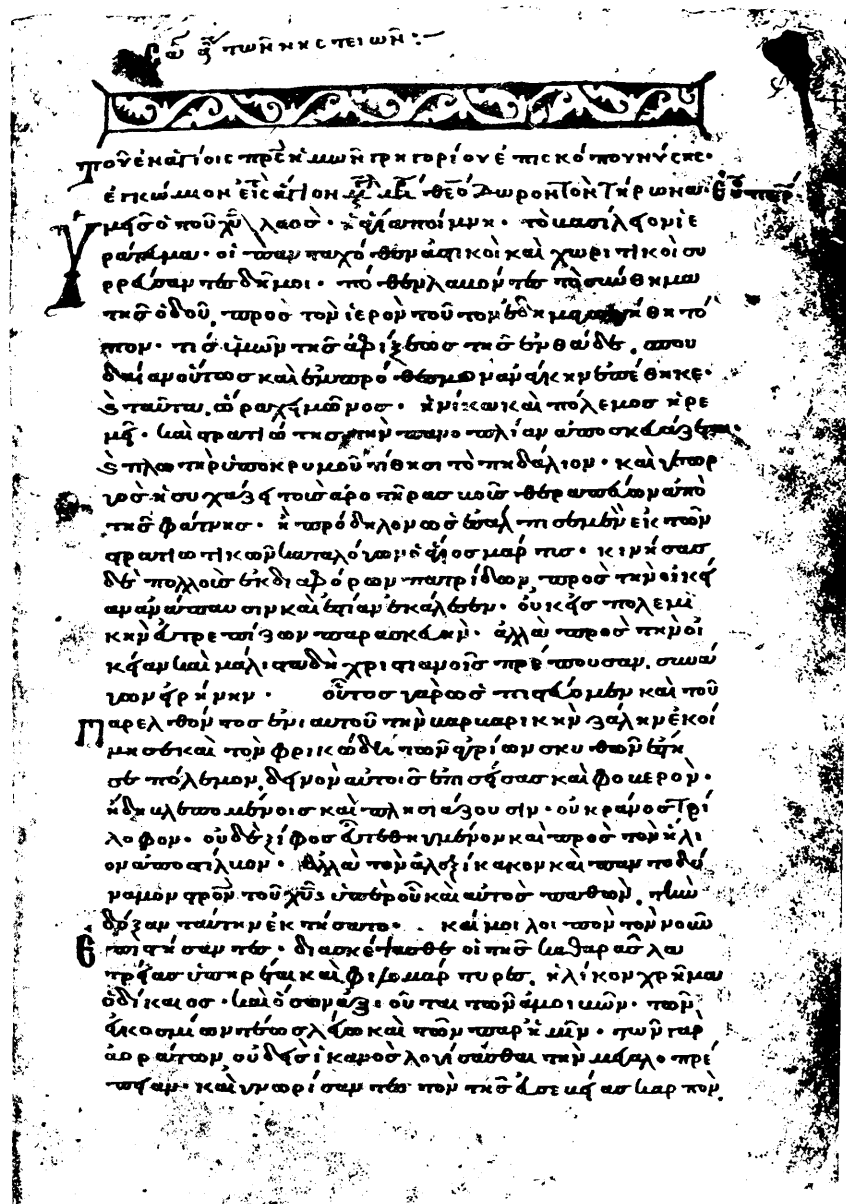 α τῶν νηστειῶν:-
Τοῦ ἐν ἁγίοις πρς ἡμῶν γρηγορίου ἐπισκόπου νύσης·
ἐγκώμιον εἰς ἅγιον μεγ μρ θεόδωρον τὸν τήρωνα·
Ὑμεῖς ὁ τοῦ χυ λαὸς· ἡ ἁγία ποίμνη· τὸ βασίλειον ἱε
ράτευμα· οἱ πανταχόθεν ἀστικοὶ καὶ χωριτικοὶ συ
ρρεύσαντες δῆμοι· πόθεν λαβόντες τὸ σύνθημα
τῆς ὁδοῦ, πρὸς τὸν ἱερὸν τοῦτον ἐδημαγωγήθητε τό
πον· τίς ὑμῶν τῆς ἀφίξεως τῆς ἐνθάδε, σπου
δαίαν οὕτως καὶ ἐμπρόθεσμον ἀνάγκην ἐπέθηκε·
καὶ ταῦτα, ὥρα χειμῶνος· ἡνίκα καὶ πόλεμος ἠρε
μεῖ· καὶ στρατιώτης τὴν πανοπλίαν ἀποσκευάζεται·
καὶ πλωτὴρ ὑπο κρυμοῦ τίθησι τὸ πηδάλιον· καὶ γεωρ
γὸς ἡσυχάζει τοὺς ἀροτῆρας βοῦς θεραπεύων ἀπὸ
τῆς φάτνης· ἢ πρόδηλον ὡς ἐσάλπισε μὲν ἐκ τῶν
στρατιωτικῶν καταλόγων ὁ ἅγιος μάρτυς· κινήσας
δὲ πολλοὺς ἐκ διαφόρων πατρίδων, πρὸς τὴν οἰκεί
αν ἀνάπαυσιν καὶ ἑστίαν ἐκάλεσεν· οὐκ εἰς πολεμι
κὴν εὐτρεπίζων παρασκευὴν· ἀλλὰ πρὸς τὴν οἰ
κείαν καὶ μάλιστα δὴ χριστιανοῖς πρέπουσαν, συνά
γων εἰρήνην· οὗτος γὰρ ὡς πιστεύομεν καὶ τοῦ
Παρελθόντος ἐνιαυτοῦ τὴν βαρβαρικὴν ζάλην ἐκοί
μησε καὶ τὸν φρικώδη τῶν ἀγρίων σκυθῶν ἔστη
σε πόλεμον, δεινὸν αὐτοῖς ἐπισείσας καὶ φοβερὸν·
ἤδη βλεπομένοις καὶ πλησιάζουσιν· οὐ κράνος τρί
λοφον· οὐδὲ ξίφος εὖ τεθηγμένον καὶ πρὸς τὸν ἥλι
ον ἀποστίλβον· ἀλλὰ τὸν ἀλεξίκακον καὶ παντοδύ
ναμον στρον τοῦ χυ, ὑπὲρ οὗ καὶ αὐτὸς παθὼν, τὴν
δόξαν ταύτην ἐκτήσατο· καί μοι λοιπὸν τὸν νοῦν
Ἐπιστήσαντες· διασκέψασθε οἱ τῆς καθαρᾶς λα
τρείας ὑπηρέται καὶ φιλομάρτυρες, ἡλίκον χρῆμα
ὁ δίκαιος· καὶ ὅσων ἀξιοῦται τῶν ἀμοιβῶν· τῶν
ἐγκοσμίων τέως λέγω καὶ τῶν παρ' ἡμῖν· τῶν γὰρ
ἀοράτων, οὐδεὶς ἱκανὸς λογίσασθαι τὴν μεγαλοπρέ
πειαν· καὶ γνωρίσαντες τὸν τῆς εὐσεβείας καρπὸν,